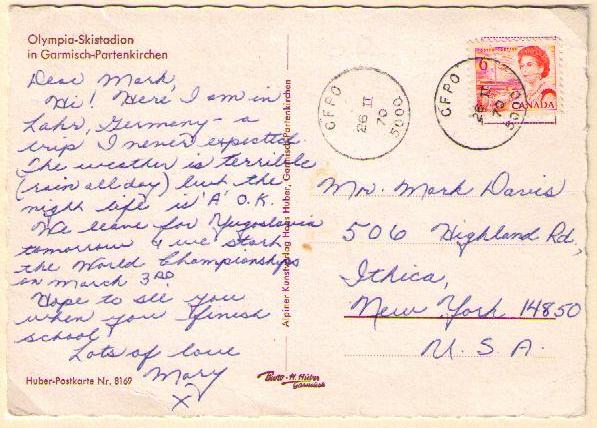 Olympia-Skistadion
in Garmisch-Partenkirchen
Dear Mark,
Hi! Here I am in
Lahr, Germany - a
trip I never expected.
The weather is terrible
(rain all day) but the
night life is 'A' O.K.
We leave for Yugoslavia
tomorrow & we start
the World Championships
on March 3RD
Hope to see you
when you finish
school!
Lots of love
Mary
X
Huber-Postkarte Nr. 8169
Alpiner Kunstverlag Hans Huber, Garmisch-Partenkirchen
Photo-H. Huber
Garmisch
CFPO
26 II
70
5000
CFPO
26 II
70
5000
CANADA
6
Mr. Mark Davis
506 Highland Rd.,
Ithica,
New York 14850
U.S.A.